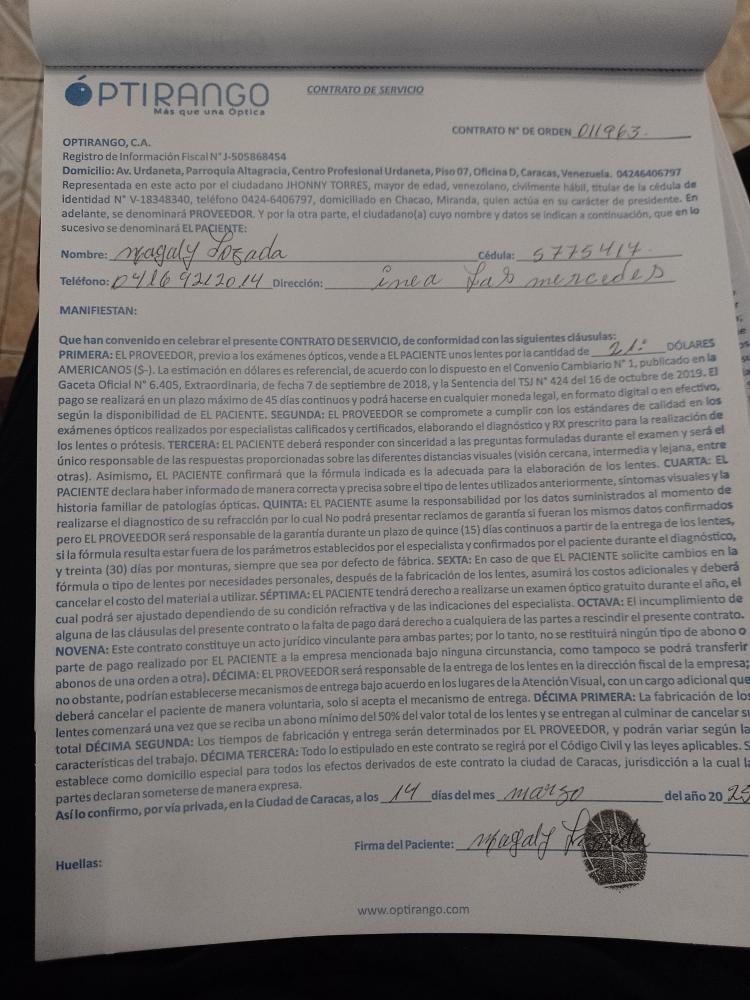 ÓPTIRANGO
Más que una Óptica
CONTRATO DE SERVICIO
CONTRATO N° DE ORDEN 011963.
OPTIRANGO, C.A.
Registro de Información Fiscal N° J-505868454
Domicilio: Av. Urdaneta, Parroquia Altagracia, Centro Profesional Urdaneta, Piso 07, Oficina D, Caracas, Venezuela. 04246406797
Representada en este acto por el ciudadano JHONNY TORRES, mayor de edad, venezolano, civilmente hábil, titular de la cédula de
identidad N° V-18348340, teléfono 0424-6406797, domiciliado en Chacao, Miranda, quien actúa en su carácter de presidente. En
adelante, se denominará PROVEEDOR. Y por la otra parte, el ciudadano(a) cuyo nombre y datos se indican a continuación, que en lo
sucesivo se denominará EL PACIENTE:
Nombre: Magaly Lozada Cédula: 5775417.
Teléfono: 04169212014 Dirección: inea Las mercedes
MANIFIESTAN:
Que han convenido en celebrar el presente CONTRATO DE SERVICIO, de conformidad con las siguientes cláusulas:
PRIMERA: EL PROVEEDOR, previo a los exámenes ópticos, vende a EL PACIENTE unos lentes por la cantidad de 21. DÓLARES
AMERICANOS ($-). La estimación en dólares es referencial, de acuerdo con lo dispuesto en el Convenio Cambiario N° 1, publicado en la
Gaceta Oficial N° 6.405, Extraordinaria, de fecha 7 de septiembre de 2018, y la Sentencia del TSJ N° 424 del 16 de octubre de 2019. El
pago se realizará en un plazo máximo de 45 días continuos y podrá hacerse en cualquier moneda legal, en formato digital o en efectivo,
según la disponibilidad de EL PACIENTE. SEGUNDA: EL PROVEEDOR se compromete a cumplir con los estándares de calidad en los
exámenes ópticos realizados por especialistas calificados y certificados, elaborando el diagnóstico y RX prescrito para la realización de
los lentes o prótesis. TERCERA: EL PACIENTE deberá responder con sinceridad a las preguntas formuladas durante el examen y será el
único responsable de las respuestas proporcionadas sobre las diferentes distancias visuales (visión cercana, intermedia y lejana, entre
otras). Asimismo, EL PACIENTE confirmará que la fórmula indicada es la adecuada para la elaboración de los lentes. CUARTA: EL
PACIENTE declara haber informado de manera correcta y precisa sobre el tipo de lentes utilizados anteriormente, síntomas visuales y la
historia familiar de patologías ópticas. QUINTA: EL PACIENTE asume la responsabilidad por los datos suministrados al momento de
realizarse el diagnostico de su refracción por lo cual No podrá presentar reclamos de garantía si fueran los mismos datos confirmados
pero EL PROVEEDOR será responsable de la garantía durante un plazo de quince (15) días continuos a partir de la entrega de los lentes,
si la fórmula resulta estar fuera de los parámetros establecidos por el especialista y confirmados por el paciente durante el diagnóstico,
y treinta (30) días por monturas, siempre que sea por defecto de fábrica. SEXTA: En caso de que EL PACIENTE solicite cambios en la
fórmula o tipo de lentes por necesidades personales, después de la fabricación de los lentes, asumirá los costos adicionales y deberá
cancelar el costo del material a utilizar. SÉPTIMA: EL PACIENTE tendrá derecho a realizarse un examen óptico gratuito durante el año, el
cual podrá ser ajustado dependiendo de su condición refractiva y de las indicaciones del especialista. OCTAVA: El incumplimiento de
alguna de las cláusulas del presente contrato o la falta de pago dará derecho a cualquiera de las partes a rescindir el presente contrato.
NOVENA: Este contrato constituye un acto jurídico vinculante para ambas partes; por lo tanto, no se restituirá ningún tipo de abono o
parte de pago realizado por EL PACIENTE a la empresa mencionada bajo ninguna circunstancia, como tampoco se podrá transferir
abonos de una orden a otra). DÉCIMA: EL PROVEEDOR será responsable de la entrega de los lentes en la dirección fiscal de la empresa;
no obstante, podrían establecerse mecanismos de entrega bajo acuerdo en los lugares de la Atención Visual, con un cargo adicional que
deberá cancelar el paciente de manera voluntaria, solo si acepta el mecanismo de entrega. DÉCIMA PRIMERA: La fabricación de los
lentes comenzará una vez que se reciba un abono mínimo del 50% del valor total de los lentes y se entregan al culminar de cancelar su
total DÉCIMA SEGUNDA: Los tiempos de fabricación y entrega serán determinados por EL PROVEEDOR, y podrán variar según la
características del trabajo. DÉCIMA TERCERA: Todo lo estipulado en este contrato se regirá por el Código Civil y las leyes aplicables. S
establece como domicilio especial para todos los efectos derivados de este contrato la ciudad de Caracas, jurisdicción a la cual la
partes declaran someterse de manera expresa.
Así lo confirmo, por vía privada, en la Ciudad de Caracas, a los 14 días del mes marzo del año 20 25
Firma del Paciente: Magaly Lozada
Huellas:
www.optirango.com